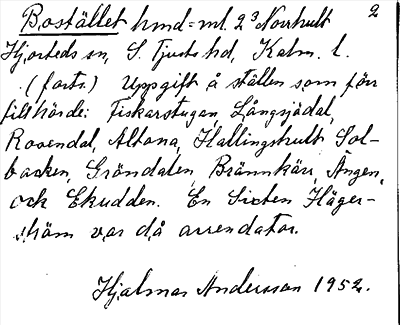 Bostället hmd = ml. 2³ Norrhult 2
Hjorteds sn, S. Tjusts hd, Kalm. l.
(forts.) Uppgift å ställen som förr
tillhörde: Fiskarstugan, Långsjödal,
Rosendal, Altona, Hallingshult Sol-
backen, Gröndalen, Brännkärr, Ängen,
och Ekudden. En Sixten Häger-
ström var då arrendator.
Hjalmar Andersson 1952.